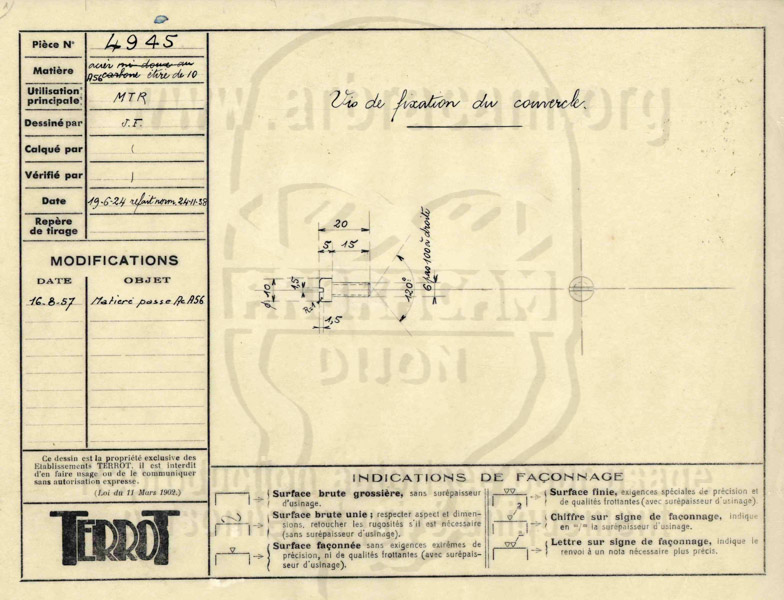 Pièce N° 4945
Matière acier mi-doux au
A56 carbone étiré de 10
Utilisation principale: MTR
Dessiné par J.F.
Calqué par
Vérifié par
Date 19-6-24 refait norm. 24-11-38
Repère
de tirage
MODIFICATIONS
DATE OBJET
16-8-57 Matière passe Ac A56
Ce dessin est la propriété exclusive des
Etablissements TERROT, il est interdit
d'en faire usage ou de le communiquer
sans autorisation expresse.
(Loi du 11 Mars 1902.)
TERROT
Vis de fixation du couvercle.
20
5 15
ϕ 10
1,5
R=1
1,5
120°
6 pas 100 à droite
INDICATIONS DE FAÇONNAGE
Surface brute grossière, sans surépaisseur
d'usinage.
Surface brute unie; respecter aspect et dimen-
sions, retoucher les rugosités s'il est nécessaire
(sans surépaisseur d'usinage).
Surface façonnée sans exigences extrêmes de
précision, ni de qualités frottantes (avec surépais-
seur d'usinage).
Surface finie, exigences spéciales de précision et
de qualités frottantes (avec surépaisseur d'usinage).
Chiffre sur signe de façonnage, indique
en "/" la surépaisseur d'usinage.
Lettre sur signe de façonnage, indique le
renvoi à un nota nécessaire plus précis.
DIJON